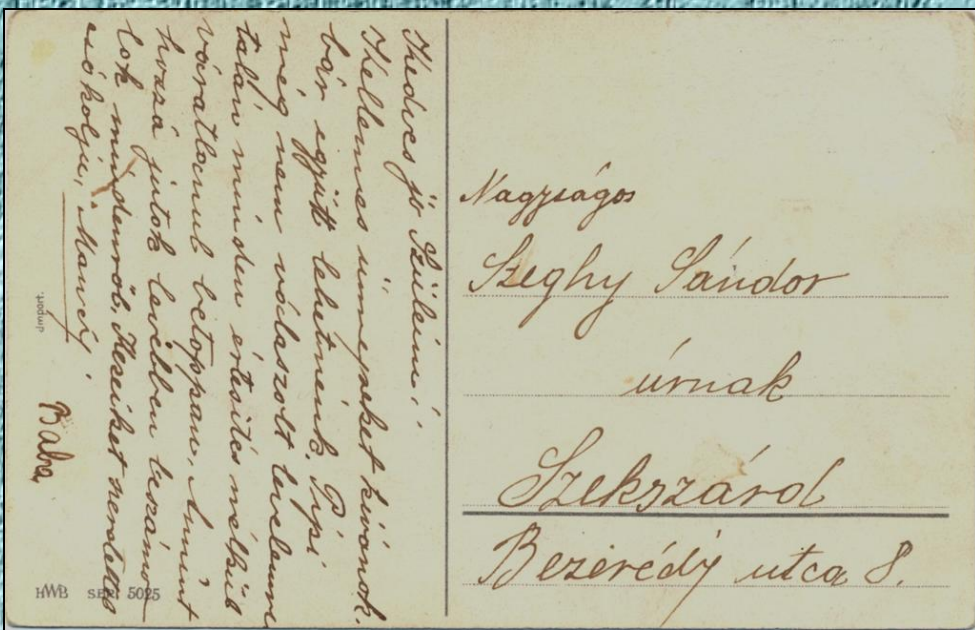 Kedves jó Szüleim!
Kellemes ünnepeket kivánok.
bár együtt lehetnénk. Pipi
még nem válaszolt levelemre
talán minden értesítés nélkül
váratlanul betoppan. Amint
hozzá jutok levélben beszámo-
lok mindenről. Kezeiket
csókolja, Manczy
Baba
Import.
HWB SER. 5025
Nagyságos
Szeghy Sándor
úrnak
Szekszárd
Bezerédy utca 8.